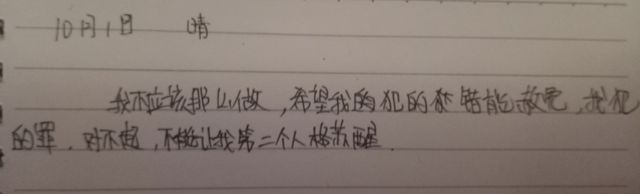 10月1日 晴
我不应该那么做，希望我的犯的错能赦免，我犯
的罪．对不起，不能让我第二个人格苏醒．